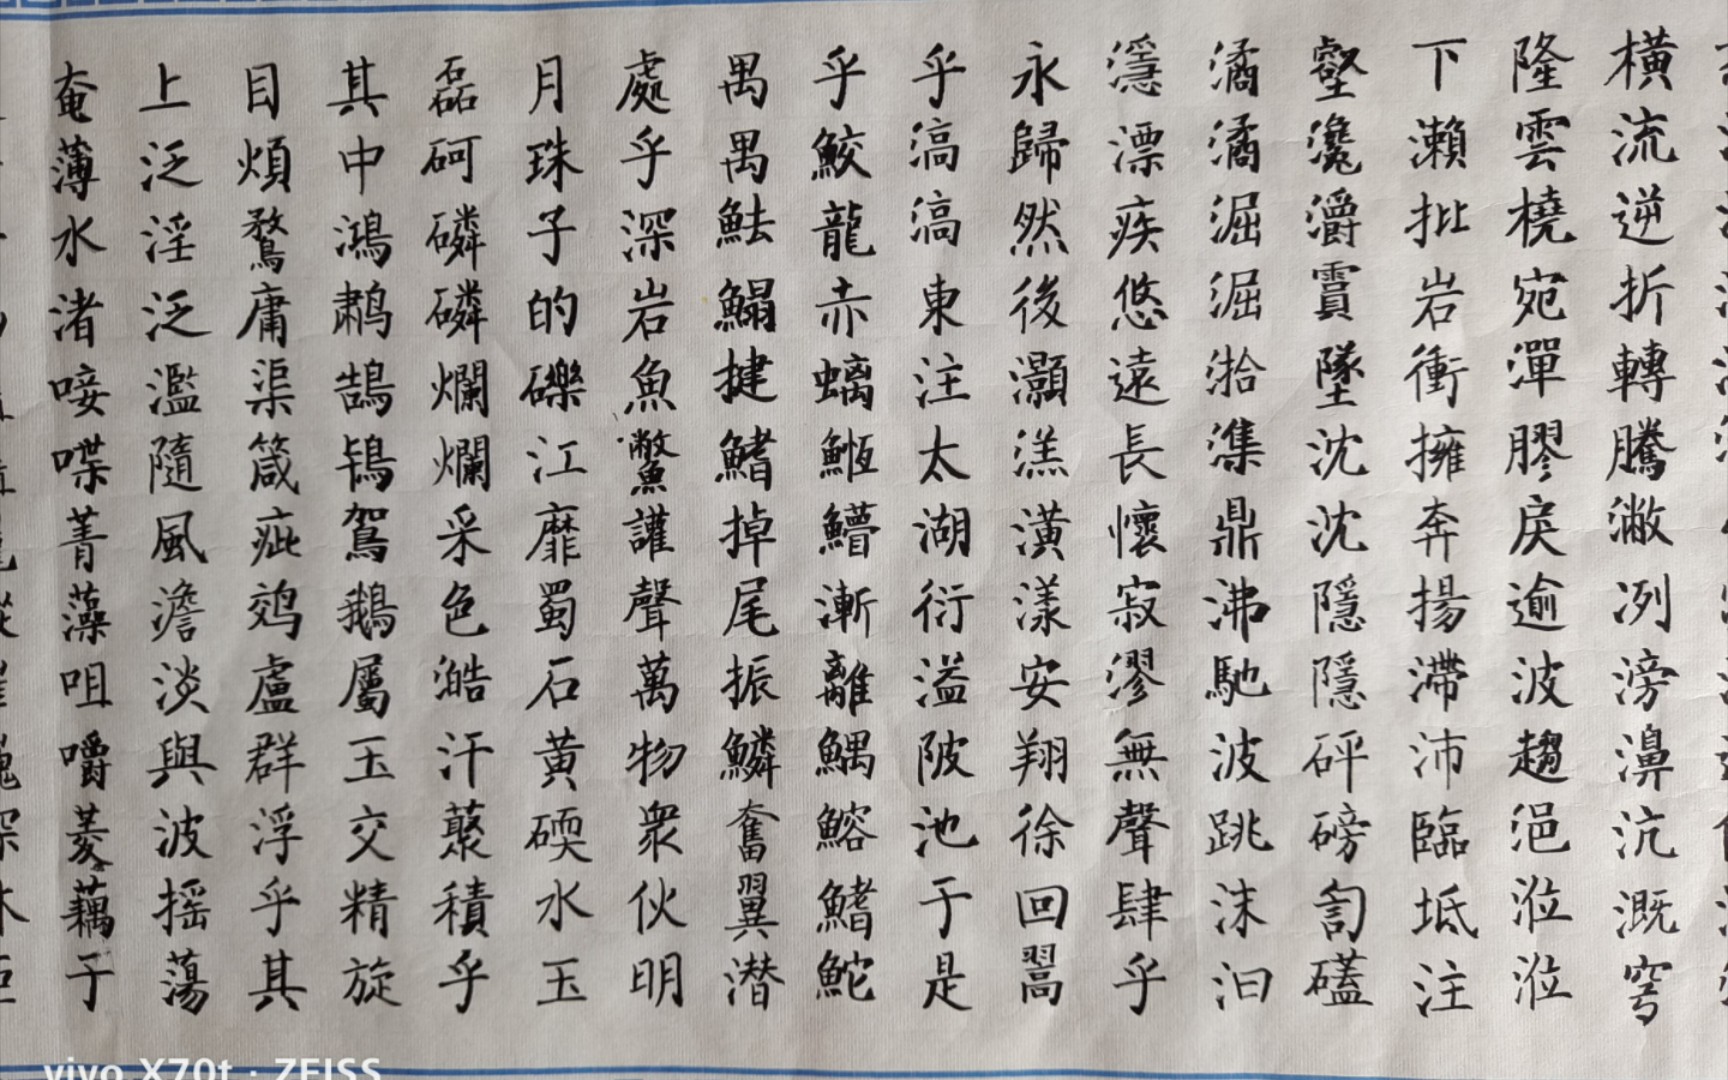 橫流逆折轉騰潎冽滂濞沆溉穹
隆雲橈宛潬膠戾逾波趨浥涖涖
下瀨批岩衝擁奔揚滯沛臨坻注
壑瀺灂霣墜沈沈隱隱砰磅訇礚
潏潏淈淈湁潗鼎沸馳波跳沫汩
濦漂疾悠遠長懷寂漻無聲肆乎
永歸然後灝溔潢漾安翔徐回翯
乎滈滈東注太湖衍溢陂池于是
乎鮫龍赤螭䱍䲛漸離鰅鰫鰭鮀
禺禺魼鰨揵鰭掉尾振鱗奮翼潜
處乎深岩魚鱉讙聲萬物衆伙明
月珠子的礫江靡蜀石黄碝水玉
磊砢磷磷爛爛采色澔汗藂積乎
其中鴻鷫鵠鴇鴐鵝屬玉交精旋
目煩鶩庸渠箴疵鵁盧群浮乎其
上泛淫泛濫隨風澹淡與波摇蕩
奄薄水渚唼喋菁藻咀嚼菱藕于
vivo X70t · ZEISS